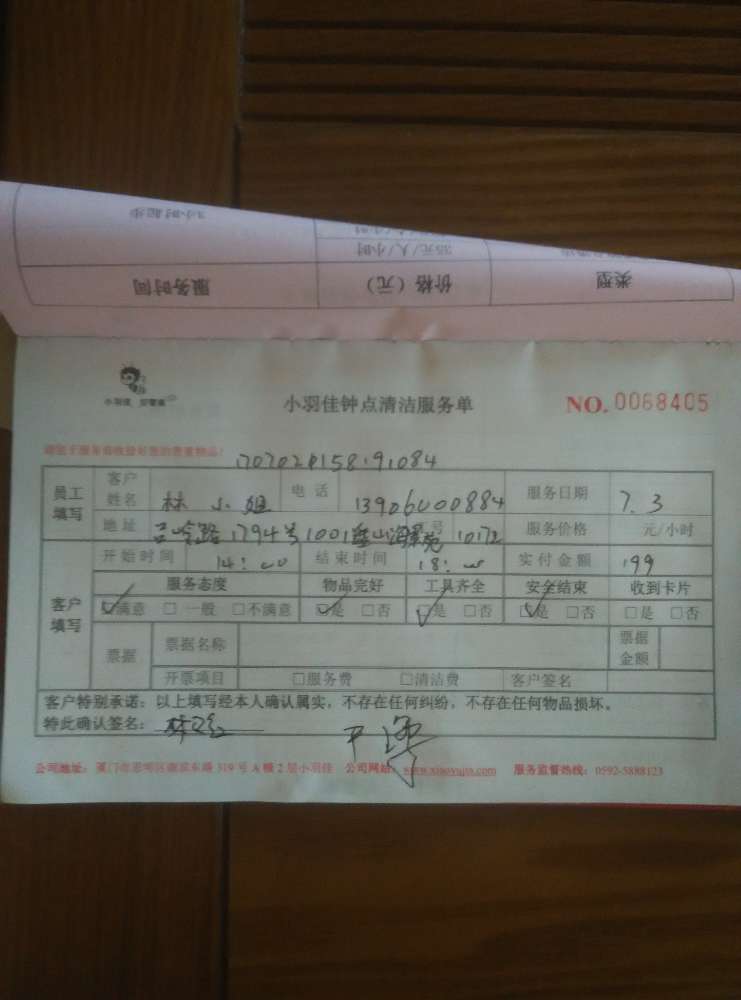 3小时起步
35元/人/小时
服务时间 价格（元） 类型
小羽佳
小羽佳钟点清洁服务单 NO. 0068405
员工填写 客户姓名 林小姐 电话 13906000884 服务日期 7.3
地址 吕岭路1794号1001 服务价格 元/小时
开始时间 14:00 结束时间 18:00 实付金额 199
客户填写 服务态度 物品完好 工具齐全 安全结束 收到卡片
☑满意 □一般 □不满意 ☑是 □否 ☑是 □否 ☑是 □否 □是 □否
票据 票据名称 票据金额
开票项目 □服务费 □清洁费 客户签名
客户特别承诺：以上填写经本人确认属实，不存在任何纠纷，不存在任何物品损坏。
特此确认签名：
公司地址：厦门市思明区湖滨东路319号A幢2层小羽佳 公司网站：www.xiaoyujia.com 服务监督热线：0592-5888123